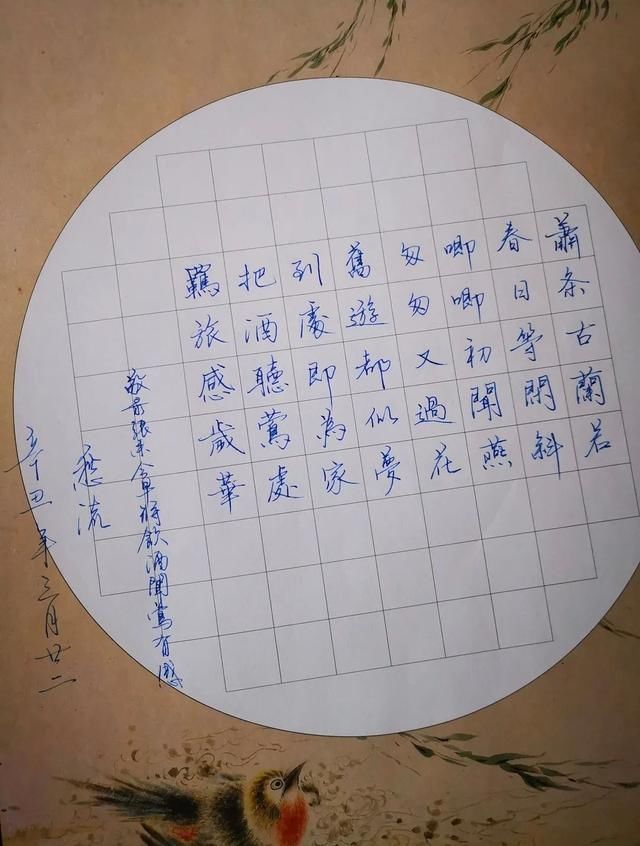 蕭条古蘭若
春日等閑斜
唧唧初聞燕
匆匆又過花
舊遊都似夢
到處即為家
把酒聽鶯處
羈旅感歲華
敬录張耒今早將飲酒聞鶯有感
流
辛丑年三月廿二